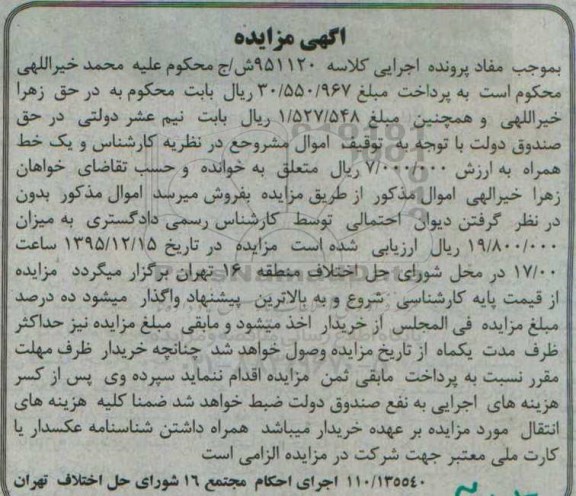 اگهی مزایده
بموجب مفاد پرونده اجرایی کلاسه ۹۵۱۱۲۰ش/ج محکوم علیه محمد خیراللهی
محکوم است به پرداخت مبلغ ۳۰/۵۵۰/۹۶۷ ریال بابت محکوم به در حق زهرا
خیراللهی و همچنین مبلغ ۱/۵۲۷/۵۴۸ ریال بابت نیم عشر دولتی در حق
صندوق دولت با توجه به توقیف اموال مشروحح در نظریه کارشناس و یک خط
همراه به ارزش ۷/۰۰۰/۰۰۰ ریال متعلق به خوانده و حسب تقاضای خواهان
زهرا خیرالهی اموال مذکور از طریق مزایده بفروش میرسد اموال مذکور بدون
در نظر گرفتن دیوان احتمالی توسط کارشناس رسمی دادگستری به میزان
۱۹/۸۰۰/۰۰۰ ریال ارزیابی شده است مزایده در تاریخ ۱۳۹۵/۱۲/۱۵ ساعت
۱۷/۰۰ در محل شورای حل اختلاف منطقه ۱۶ تهران برگزار میگردد مزایده
از قیمت پایه کارشناسی شروع و به بالاترین پیشنهاد واگذار میشود ده درصد
مبلغ مزایده فی المجلس از خریدار اخذ میشود و مابقی مبلغ مزایده نیز حداکثر
ظرف مدت یکماه از تاریخ مزایده وصول خواهد شد چنانچه خریدار ظرف مهلت
مقرر نسبت به پرداخت مابقی ثمن مزایده اقدام ننماید سپرده وی پس از کسر
هزینه های اجرایی به نفع صندوق دولت ضبط خواهد شد ضمنا کلیه هزینه های
انتقال مورد مزایده بر عهده خریدار میباشد همراه داشتن شناسنامه عکسدار یا
کارت ملی معتبر جهت شرکت در مزایده الزامی است
۱۱۰/۱۳۵۵۴۰ اجرای احکام مجتمع ۱۶ شورای حل اختلاف تهران